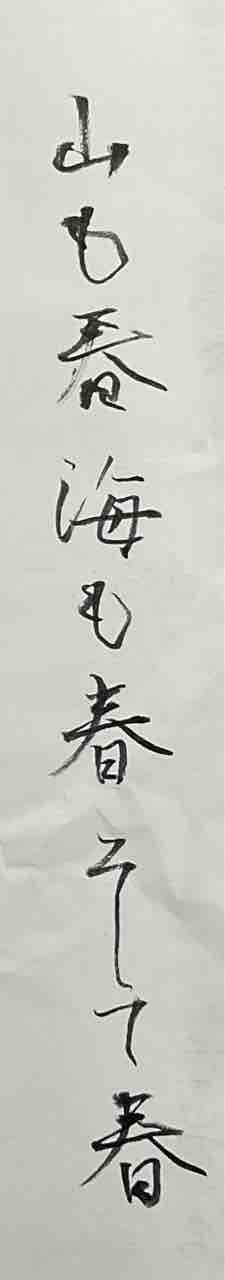 山も春海も春そして春